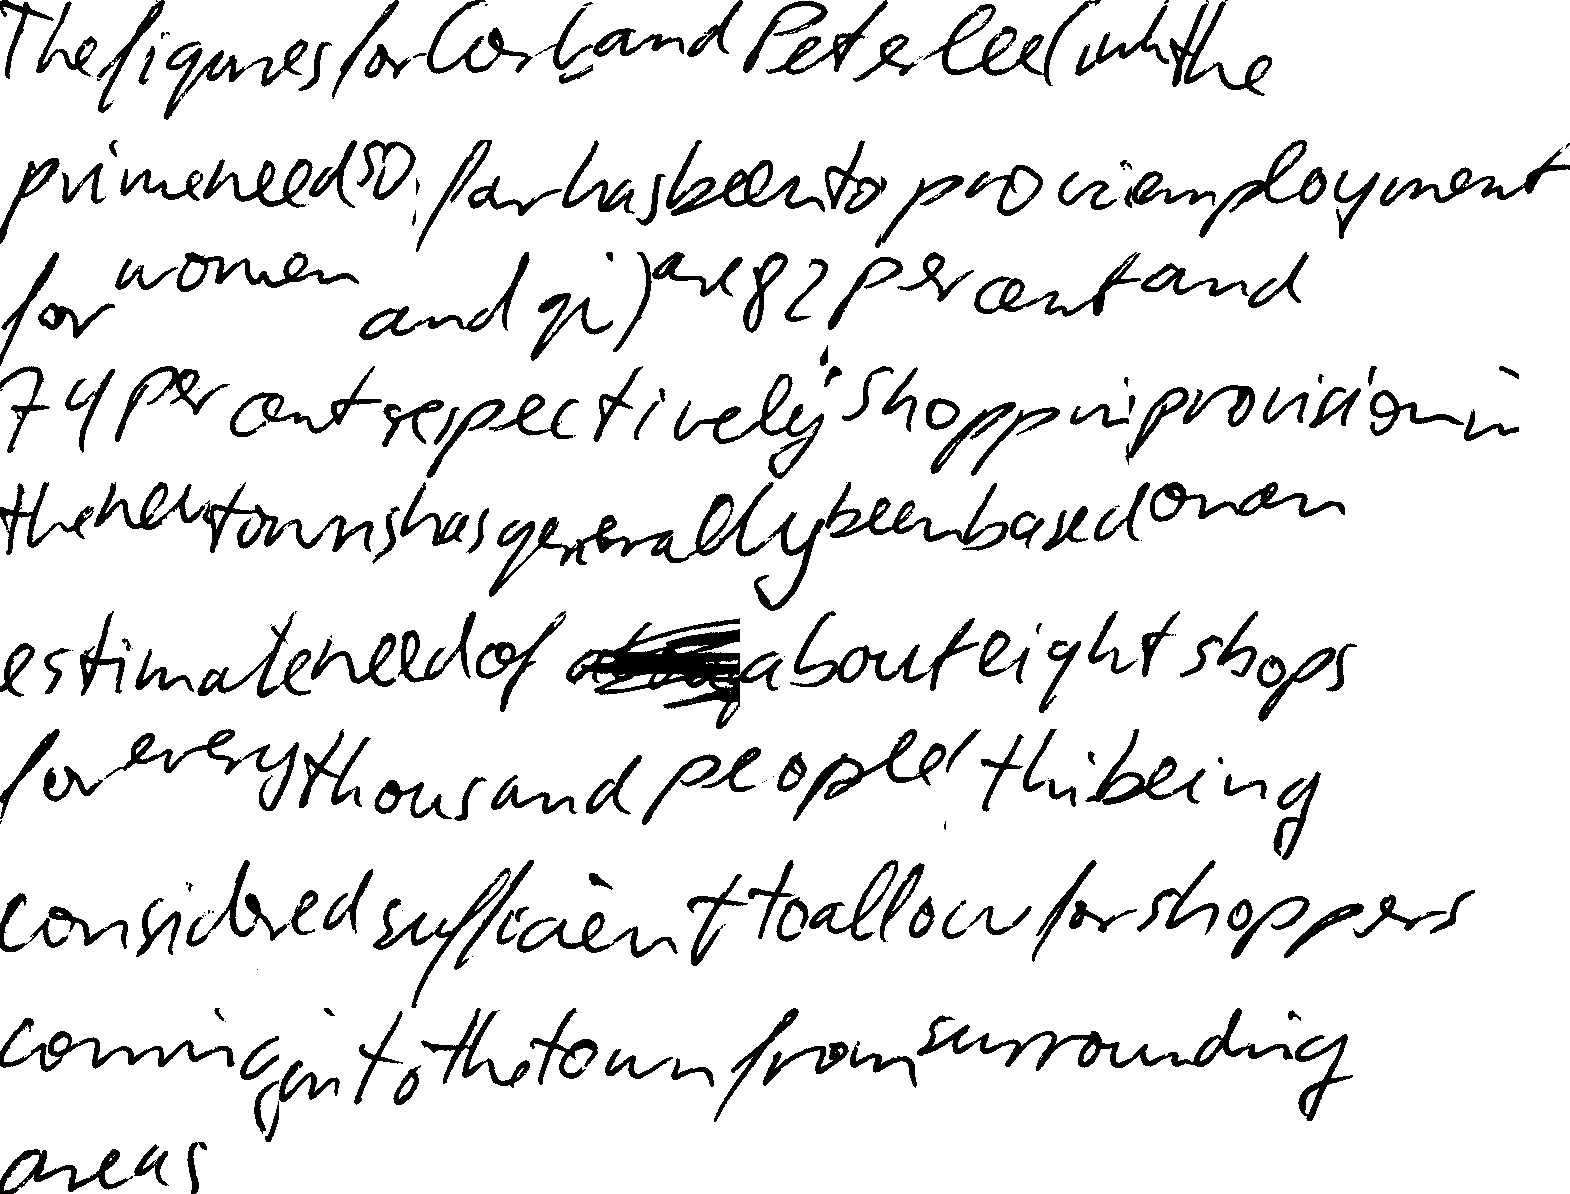 The figures for Corb and Peterlee (wh the
prime need so far has been to provi employment
for women and gi) are 82 per cent and
74 per cent respectively. Shoppin provision in
the new towns has generally been based on an
estimate need of about eight shops
for every thousand people, thi being
considered sufficient to allow for shoppers
coming into the town from surrounding
areas